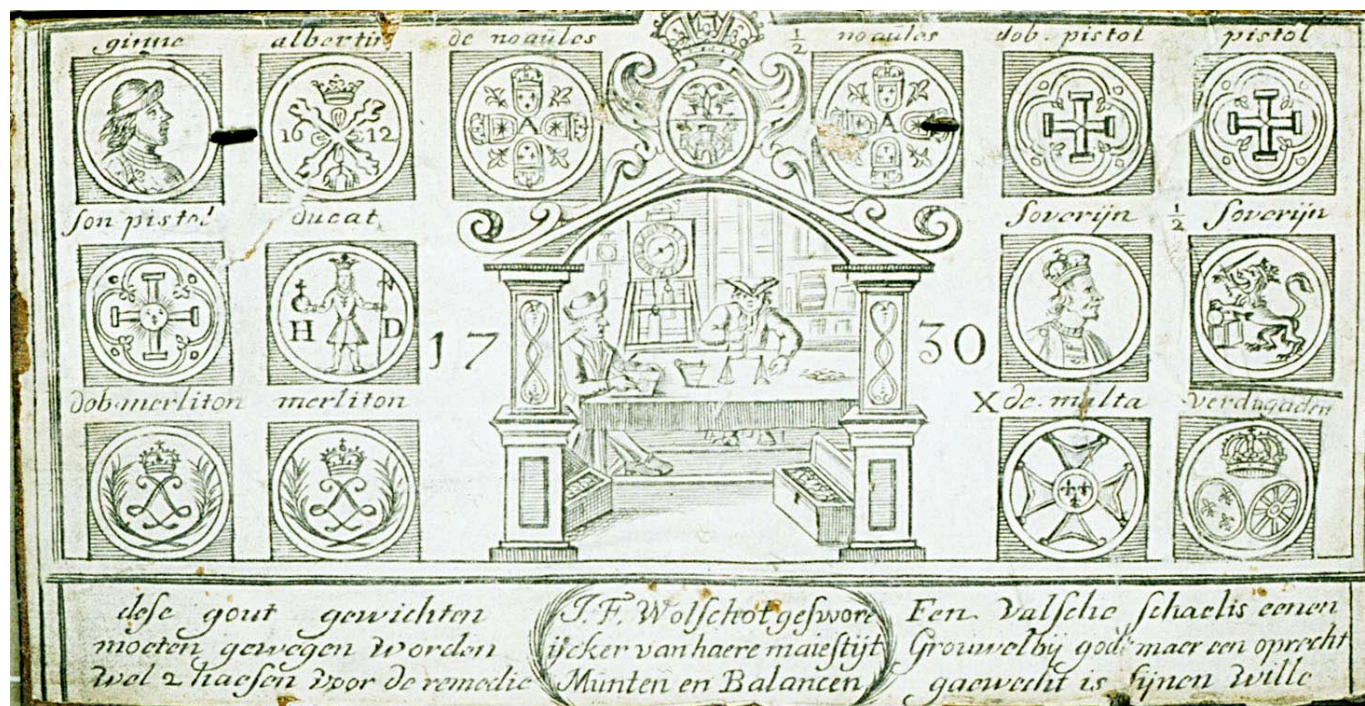 ginne albertin de noaules ½ noaules dob. pistol pistol
1612
A A
son pistol ducat soverijn ½ soverijn
H D
1730
dob. merliton merliton X de. malta verdugaden
dese gout gewichten
moeten gewegen worden
wel 2 haesen voor de remedie
J. F. Wolschot geswore
ijcker van haere maiestijt
Munten en Balancen
Een valsche schael is eenen
Grouwel bij godt maer een oprecht
gaewecht is sijnen wille